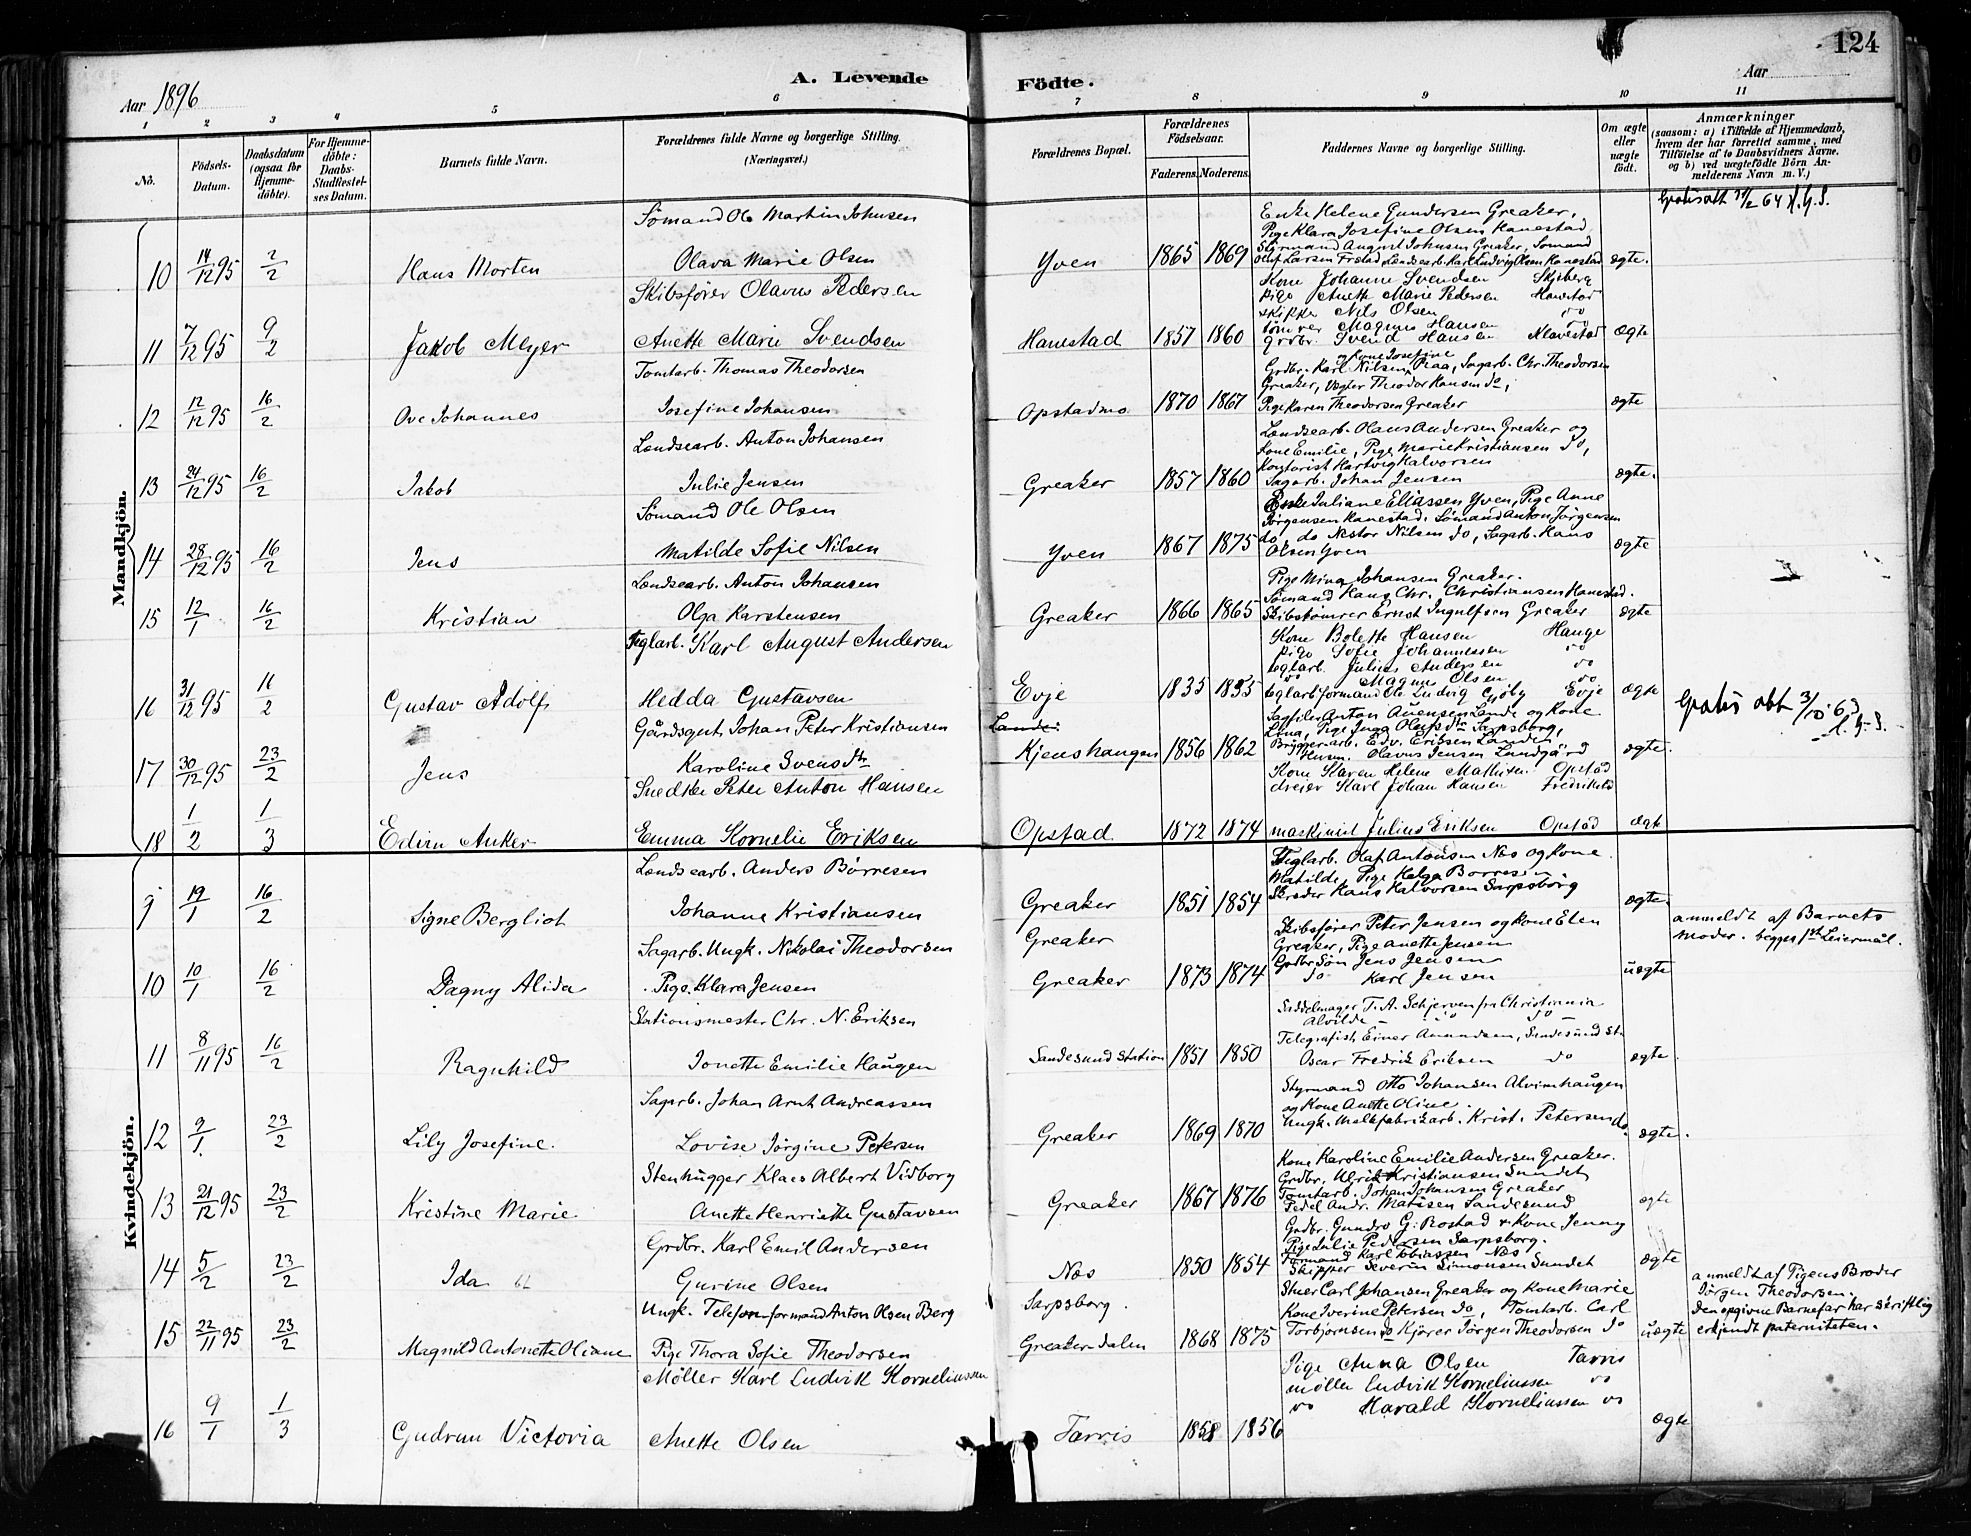 124
A. Levende Födte.
Aar 1896
Aar
1 2 3 4 5 6 7 8 9 10 11
No.
Födsels-Datum.
Daabsdatum (ogsaa for Hjemmedöbte).
For Hjemmedöbte: Daabs-Stadfestelses Datum.
Barnets fulde Navn.
Forældrenes fulde Navne og borgerlige Stilling. (Næringsvei.)
Forældrenes Bopæl.
Forældrenes Födselsaar.
Faderens. Moderens.
Faddernes Navne og borgerlige Stilling.
Om ægte eller uægte födt.
Anmærkninger
(saasom: a) i Tilfælde af Hjemmedaab, hvem der har forrettet samme, med Tilföielse af to Daabsvidners Navne. og b) ved uægtefödte Börn Anmelderens Navn m. V.)
Mandkjön.
10 14/12 95 2/2 Hans Morten
Sömand Ole Martin Johnsen
Olava Marie Olsen
Yven 1865 1869
Enke Helene Gundersen Greaker,
Pige Klara Josefine Olsen Hanestad,
Styrmand August Johnsen Greaker, Sömand
Oluf Larsen Frstad, Landsearb. Karl Ludvig Olsen Hanestad
ægte.
Gratisatt 11/2 64 H.G.S.
11 7/12 95 9/2 Jakob Meyer
Skibsförer Olavus Pedersen
Anette Marie Svendsen
Hanestad 1857 1860
Kone Johanne Svendsen Skjeberg
pige Anette Marie Pedersen Hanestad
skipper Nils Olsen do
tömrer Magnus Hansen do
grdbr. Svend Hansen Navestad
ægte
12 12/12 95 16/2 Ove Johannes
Tomtarb. Thomas Theodorsen
Josefine Johansen
Opstadmo 1870 1867
og kone Josefine
Grdbr. Karl Nilsen Praa, Sagarb. Chr. Theodorsen
Greaker, Vægter Theodor Hansen do,
Pige Karen Theodorsen Greaker
ægte
13 24/12 95 16/2 Jakob
Lændsearb. Anton Johansen
Julie Jensen
Greaker 1857 1860
Lændsearb. Olaus Andersen Greaker og
Kone Emilie, Pige Marie Kristiansen do,
Kontorist Hartvig Halvorsen
Sagarb. Johan Jensen
ægte.
14 28/12 95 16/2 Jens
Sömand Ole Olsen
Matilde Sofie Nilsen
Yven 1867 1875
Enke Juliane Eliassen Yven, Pige Anne
Jörgensen Hanestad, Sömand Anton Jörgensen
do, do Nestor Nilsen do, Sagarb. Hans
Olsen Yven
ægte
15 12/1 16/2 Kristian
Lændsearb. Anton Johansen
Olga Karstensen
Greaker 1866 1865
Pige Mina Johansen Greaker.
Sömand Hans Chr. Christiansen Hanestad.
Skibstömrer Ernst Ingulfsen Greaker
ægte
16 31/12 95 16/2 Gustav Adolf
Teglarb. Karl August Andersen
Hedda Gustavsen
Evje 1835 1855
Kone Bolette Hansen Hauge
pige Sofie Johannessen do
teglarb. Julius Andersen do
do Magnus Olsen do
teglarb formand Ole Ludvig Gjöby Evje
ægte
Gratis att 3/10 63
H.G.S.
17 30/12 95 23/2 Jens
Gårdsgut Johan Peter Kristiansen
Karoline Svensdtr
Lande
Kjenshaugen 1856 1862
Sagfiler Anton Auensen Lande og Kone
Lina, Pige Inga Olausdtr Sarpsborg,
Bryggerarb. Edv. Eriksen Landen
Olavus Jensen Landgård
ægte.
18 1/2 1/3 Edim Anker
Snedker Peter Anton Hansen
Emma Kornelie Eriksen
Opstad 1872 1874
Kone Karen Helene Mathisen Opstad
dreier Karl Johan Hansen Fredrikstad
maskinist Julius Eriksen Opstad
ægte
Kvindekjön.
9 19/1 16/2 Signe Bergliot
Lændsearb. Anders Börresen
Johanne Kristiansen
Greaker 1851 1854
Teglarb. Olaf Antonsen Næs og Kone
Matilde, Pige Helga Borresen
Skræder Hans Halvorsen Sarpsborg
ægte.
10 10/1 16/2 Dagny Alida
Sagarb. Ungk. Nikolai Theodorsen
Pige Klara Jensen
Greaker
Greaker 1873 1874
Skibsförer Peter Jensen og Kone Elen
Greaker, Pige Anette Jensen
Grdbr. Sön Jens Jensen
do Karl Jensen
uægte
anmeldt af Barnets
Moder. begges 1ste Leiermål.
11 8/11 95 16/2 Ragnhild
Stationsmester Chr. N. Eriksen
Jonette Emilie Haugen
Sandesund Station 1851 1850
Saddelmager T. A. Schjerven fra Christiania
Alvilde — do —
Telegrafist Einar Amundsen, Sandesund St.
Oscar Fredrik Eriksen do
ægte
12 9/1 23/2 Lily Josefine.
Sagarb. Johan Arnt Andreassen
Lovise Jörgine Petersen
Greaker 1869 1870
Styrmand Otto Johansen Alvimhaugen
og Kone Anette Oline.
Ungk. Melkfabrikarb. Krist. Petersen do.
ægte.
13 21/12 95 23/2 Kristine Marie
Stenhugger Klaes Albert Vidborg
Anette Henriette Gustavsen
Greaker 1867 1876
Kone Karoline Emilie Andersen Greaker.
Grdbr. Ulrik Kristiansen Sundet
Tomtarb. Johan Johansen Greaker
Pedel Andr. Matisen Sandesund
ægte
14 5/2 23/2 Ida
Grdbr. Karl Emil Andersen
Gurine Olsen
Næs 1850 1854
Grdbr. Gundro G. Rostad & Kone Jenny
Pige Julie Pedersen Sarpsborg.
Formand Karl Tobiassen Næs
Skipper Severin Simonsen Sundet
ægte
15 22/11 95 23/2 Magnild Antonette Oliane
Ungk. Telefon-formand Anton Olsen Berg
Pige Thora Sofie Theodorsen
Sarpsborg.
Greaker-dalen 1868 1875
Stuer Carl Johansen Greaker og Kone Marie
Kone Iverine Petersen do, Tomtarb. Carl
Torbjornsen do Kjörer Jörgen Theodorsen do
uægte
anmeldt af Pigens Broder
Jörgen Theodorsen.
Den opgivne Barnefar har skriftlig
erkjendt paterniteten.
16 9/1 1/3 Gudrun Victoria
Möller Karl Ludvik Korneliussen
Anette Olsen
Tarris 1858 1856
Pige Anna Olsen Tarris
möller Ludvik Korneliussen do
do Harald Korneliussen do
ægte